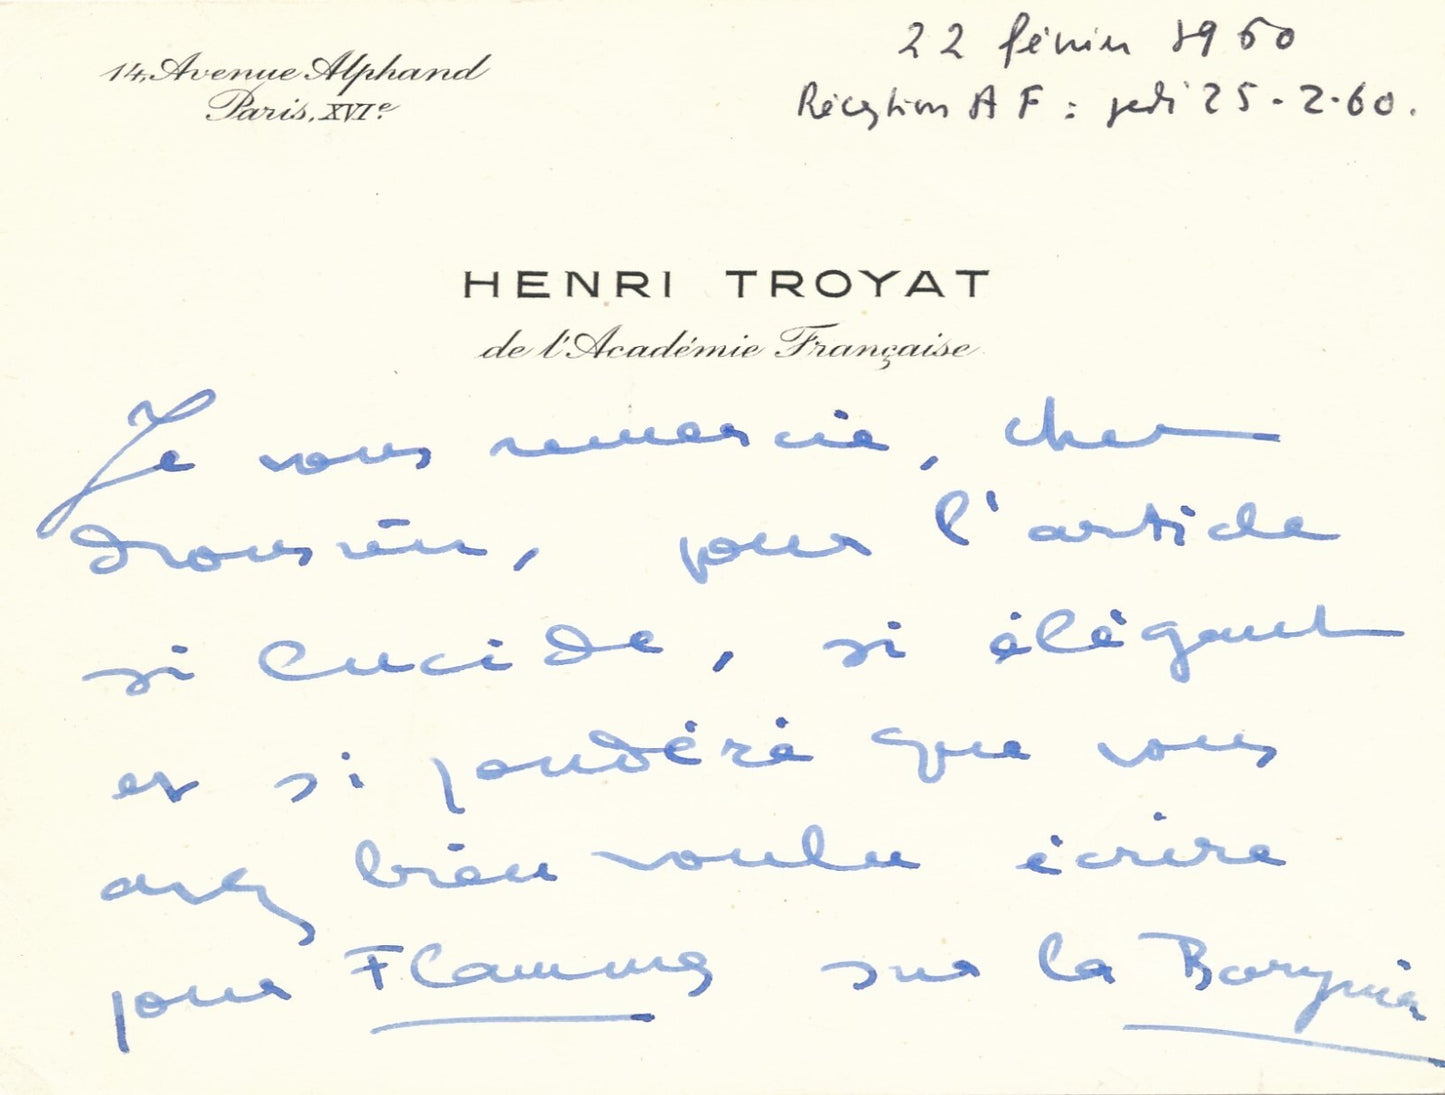 14, Avenue Alphand
Paris, XVIe
22 février 1960
Réception A F : jeudi 25-2-60.
HENRI TROYAT
de l'Académie Française
Je vous remercie, cher
, pour l'article
si lucide, si élégant
et si pondéré que vous
avez bien voulu écrire
pour Flammes sur la Barynia